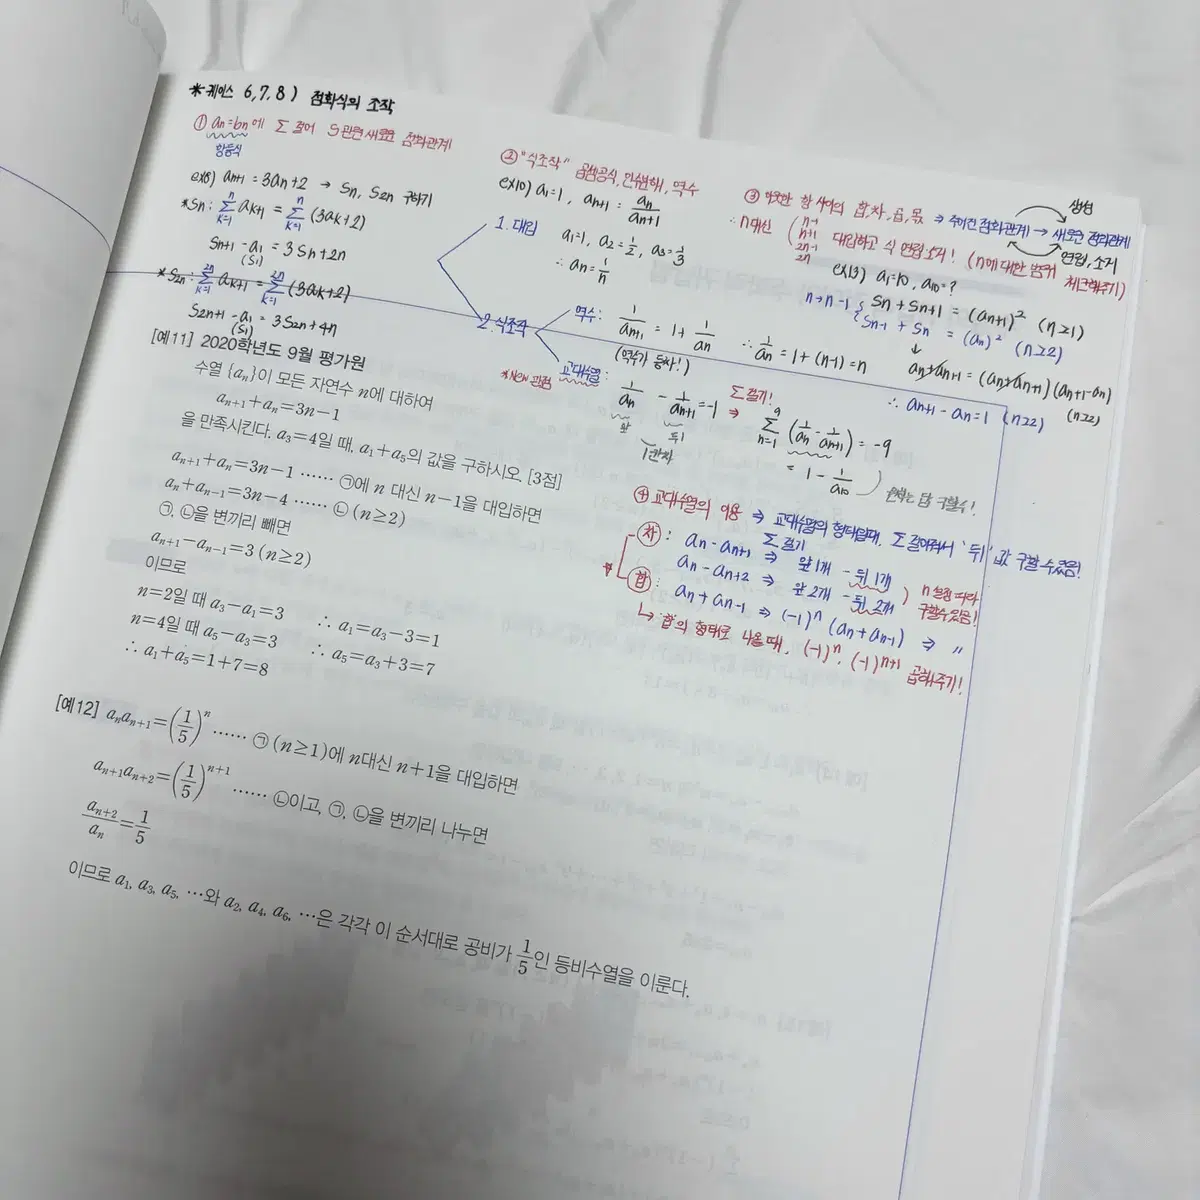 *케이스 6,7,8) 점화식의 조작
① an=bn에 Σ 걸어 S관련 새로운 점화관계
항등식
ex8) an+1 = 3an+2 → Sn, S2n 구하기
*Sn: Σ(k=1, n) ak+1 = Σ(k=1, n) (3ak+2)
Sn+1 - a1 = 3Sn+2n
(S1)
*S2n: Σ(k=1, 2n) ak+1 = Σ(k=1, 2n) (3ak+2)
S2n+1 - a1 = 3S2n+4n
(S1)
② "식조작" 곱셈공식, 인수분해, 역수
ex10) a1=1, an+1 = an/an+1
1. 대입
a1=1, a2=1/2, a3=1/3
∴ an=1/n
2. 식조작
역수: 1/an+1 = 1 + 1/an ∴ 1/an = 1+(n-1)=n
(역수가 등차!)
*New 관점
교대수열: 1/an - 1/an+1 = -1 ⇒ Σ걸기! Σ(n=1, 9) (1/an - 1/an+1) = -9
앞 뒤
1칸차
= 1 - 1/a10
원하는 답 구할수!
③ 이웃한 항 사이의 합,차,곱,몫 ⇒ 주어진 점화관계 → 새로운 점화관계
생성
연립, 소거
∴ n대신 (n-1 n+1 2n-1 2n 대입하고 식 연립,소거! (n에 대한 범위 체크해주기)
ex13) a1=10, a10=?
n→n-1 { Sn + Sn+1 = (an+1)² (n≥1)
Sn-1 + Sn = (an)² (n≥2)
↓
an+an+1 = (an+an+1)(an+1-an)
(n≥2)
∴ an+1 - an = 1 (n≥2)
④ 교대수열의 이용 ⇒ 교대수열의 형태일때, Σ걸어줘서 '뒤' 값 구할수있음!
Σ걸기
차: an - an+1 ⇒ 앞1개 - 뒤1개
an - an+2 ⇒ 앞2개 - 뒤2개 ) n설정 따라 구할수있음!
*합: an + an-1 ⇒ (-1)ⁿ (an+an-1) ⇒ 〃
↳ 합의 형태로 나올때, (-1)ⁿ, (-1)ⁿ⁺¹ 곱해주기!
[예11] 2020학년도 9월 평가원
수열 {an}이 모든 자연수 n에 대하여
an+1+an=3n-1
을 만족시킨다. a3=4일 때, a1+a5의 값을 구하시오. [3점]
an+1+an=3n-1 …… ㉠에 n 대신 n-1을 대입하면
an+an-1=3n-4 …… ㉡ (n≥2)
㉠, ㉡을 변끼리 빼면
an+1-an-1=3 (n≥2)
이므로
n=2일 때 a3-a1=3 ∴ a1=a3-3=1
n=4일 때 a5-a3=3 ∴ a5=a3+3=7
∴ a1+a5=1+7=8
[예12] anan+1=(1/5)ⁿ …… ㉠ (n≥1)에 n대신 n+1을 대입하면
an+1an+2=(1/5)ⁿ⁺¹ …… ㉡이고, ㉠, ㉡을 변끼리 나누면
an+2/an=1/5
이므로 a1, a3, a5, …와 a2, a4, a6, …은 각각 이 순서대로 공비가 1/5인 등비수열을 이룬다.